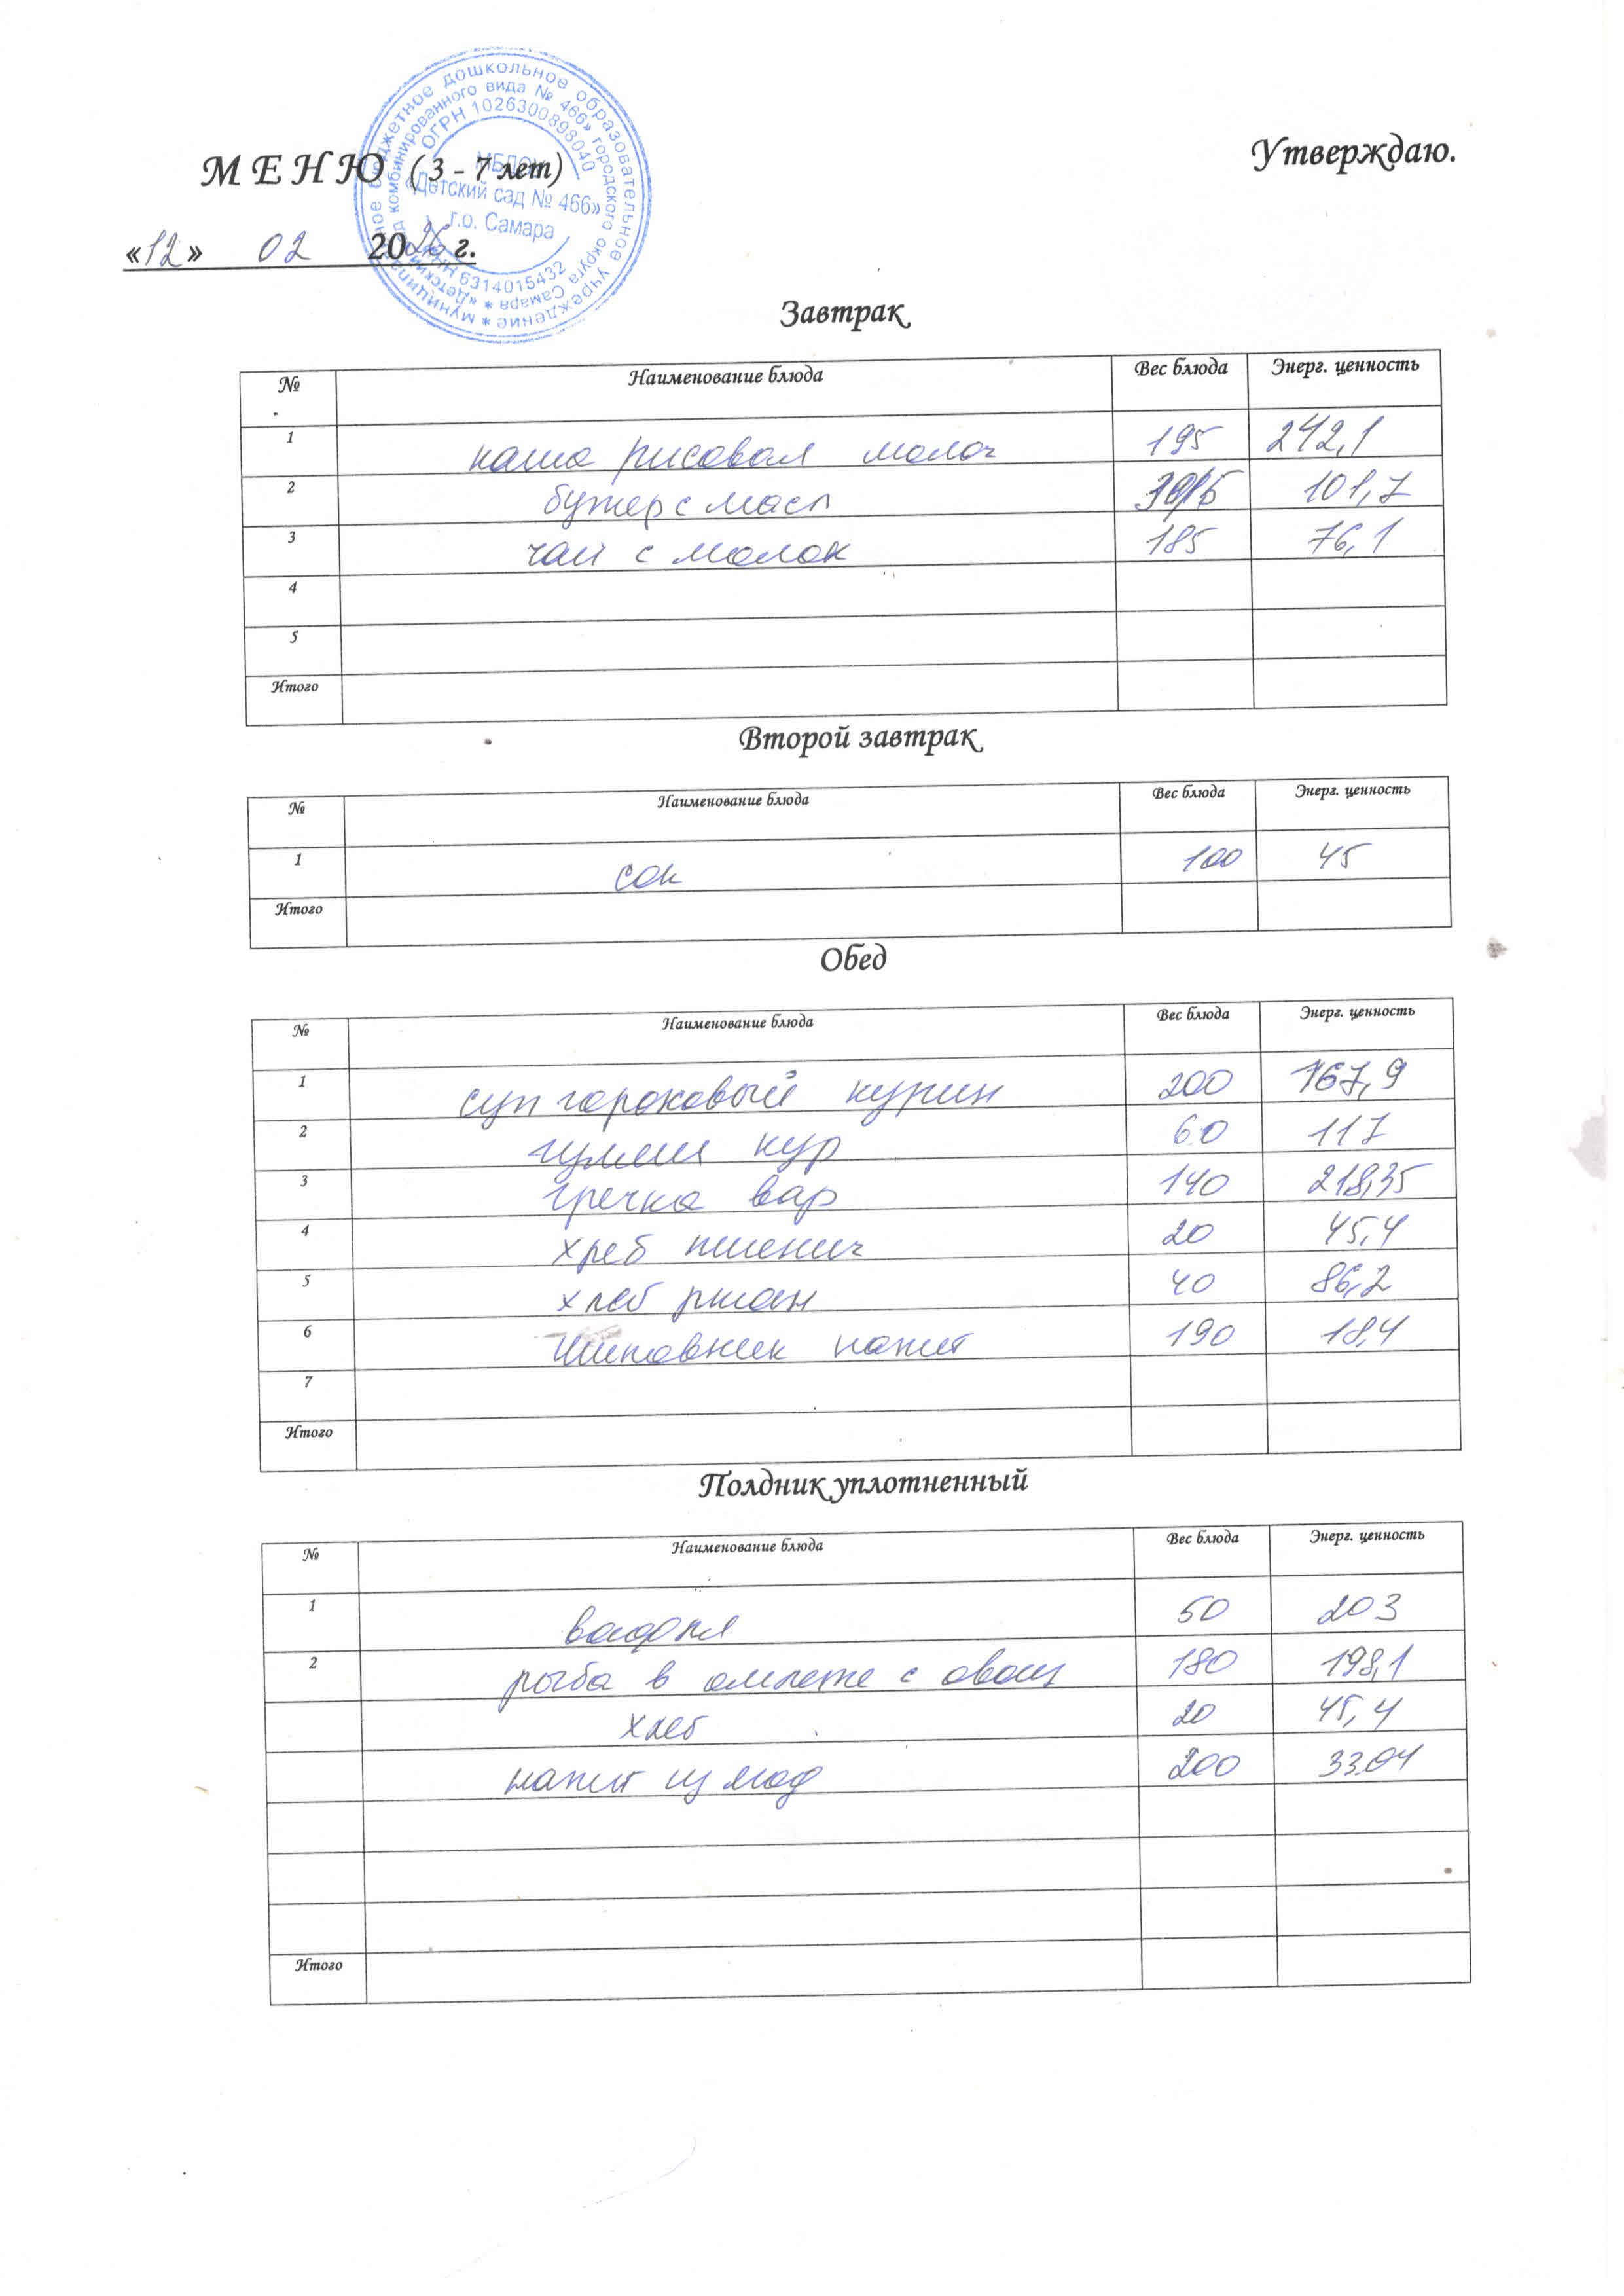 муниципальное бюджетное дошкольное образовательное учреждение
«Детский сад комбинированного вида № 466» городского округа Самара
ОГРН 1026300898040
МБДОУ
«Детский сад № 466»
г.о. Самара
ИНН 6314015432
Утверждаю.
М Е Н Ю ( 3 - 7 лет)
«12» 02 2026 г.
Завтрак
№ Наименование блюда Вес блюда Энерг. ценность
1 каша рисовая молоч 195 242,1
2 бутер с масл 101,7
3 чай с молок 185 76,1
4
5
Итого
Второй завтрак
№ Наименование блюда Вес блюда Энерг. ценность
1 сок 100 45
Итого
Обед
№ Наименование блюда Вес блюда Энерг. ценность
1 суп гороховый курин 200 167,9
2 гуляш кур 60 117
3 гречка вар 140 218,35
4 хлеб пшенич 20 45,4
5 хлеб ржан 40 86,2
6 Шиповник напит 190 18,4
7
Итого
Полдник уплотненный
№ Наименование блюда Вес блюда Энерг. ценность
1 вафля 50 203
2 рыба в омлете с овощ 180 198,1
хлеб 20 45,4
напит из 200 33.04
Итого